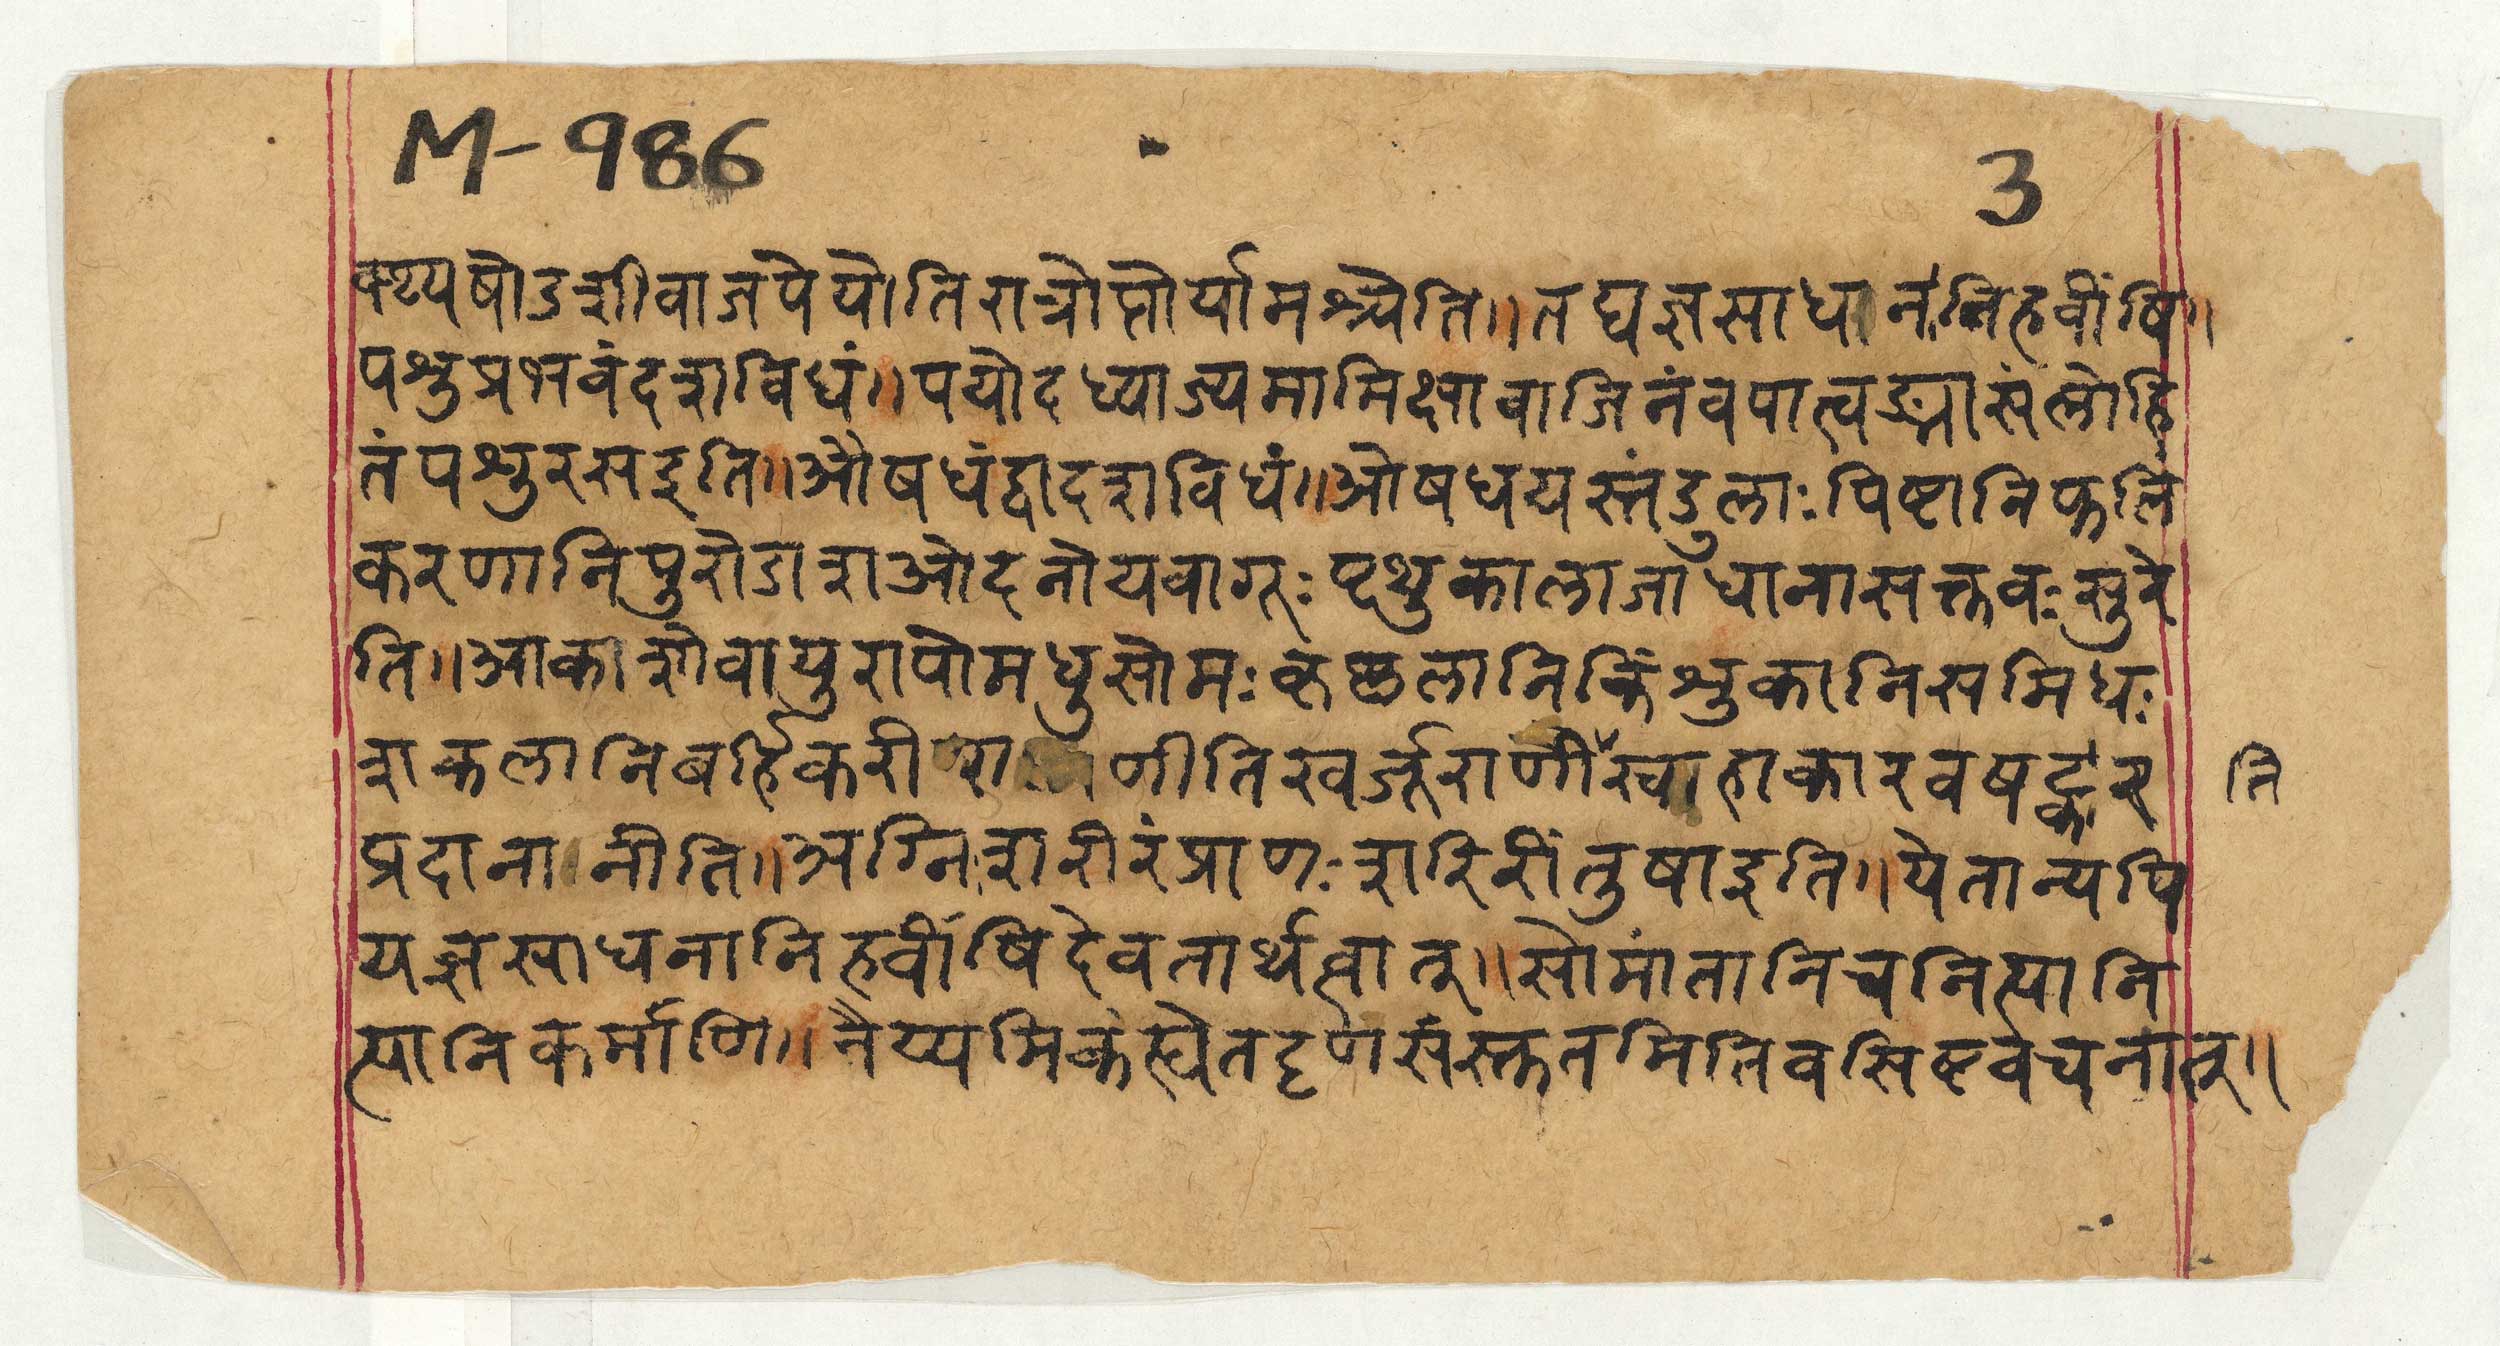 M-986
3
क्थ्यषोडशीवाजपेयोतिरात्रोप्तोर्यामश्चेति॥तद्यज्ञसाधाननिहवींषि॥
पश्रुप्रभवंदशविधं॥पयोदध्याज्यमामिक्षावाजिनंवपात्वङ्मासंलोहि
तंपश्रुरसइति॥औषधंद्वादशविधं॥ओषधयस्तंडुलाःपिष्टानिफलि
करणानिपुरोडाशओदनोयवागूःपृथुकालाजाधानासक्तवःसुरे
ति॥आकाशोवायुरापोमधुसोमःकृष्णलानिकिंश्रुकानिसमिधः
शकलानिबर्हिकरी णीतिखर्जूराणीस्वाहाकारवषट्कार
नि
प्रदानानीति॥अग्निशरीरंप्राणःशरिरींतुषाइति॥येतान्यपि
यज्ञसाधनानिहवींषिदेवतार्थत्वात्॥सोमांतानिचनित्यानि
त्यानिकर्माणि॥नैय्यमिकंह्येतदृणसंस्कृतमितिवसिष्टवचनात्॥